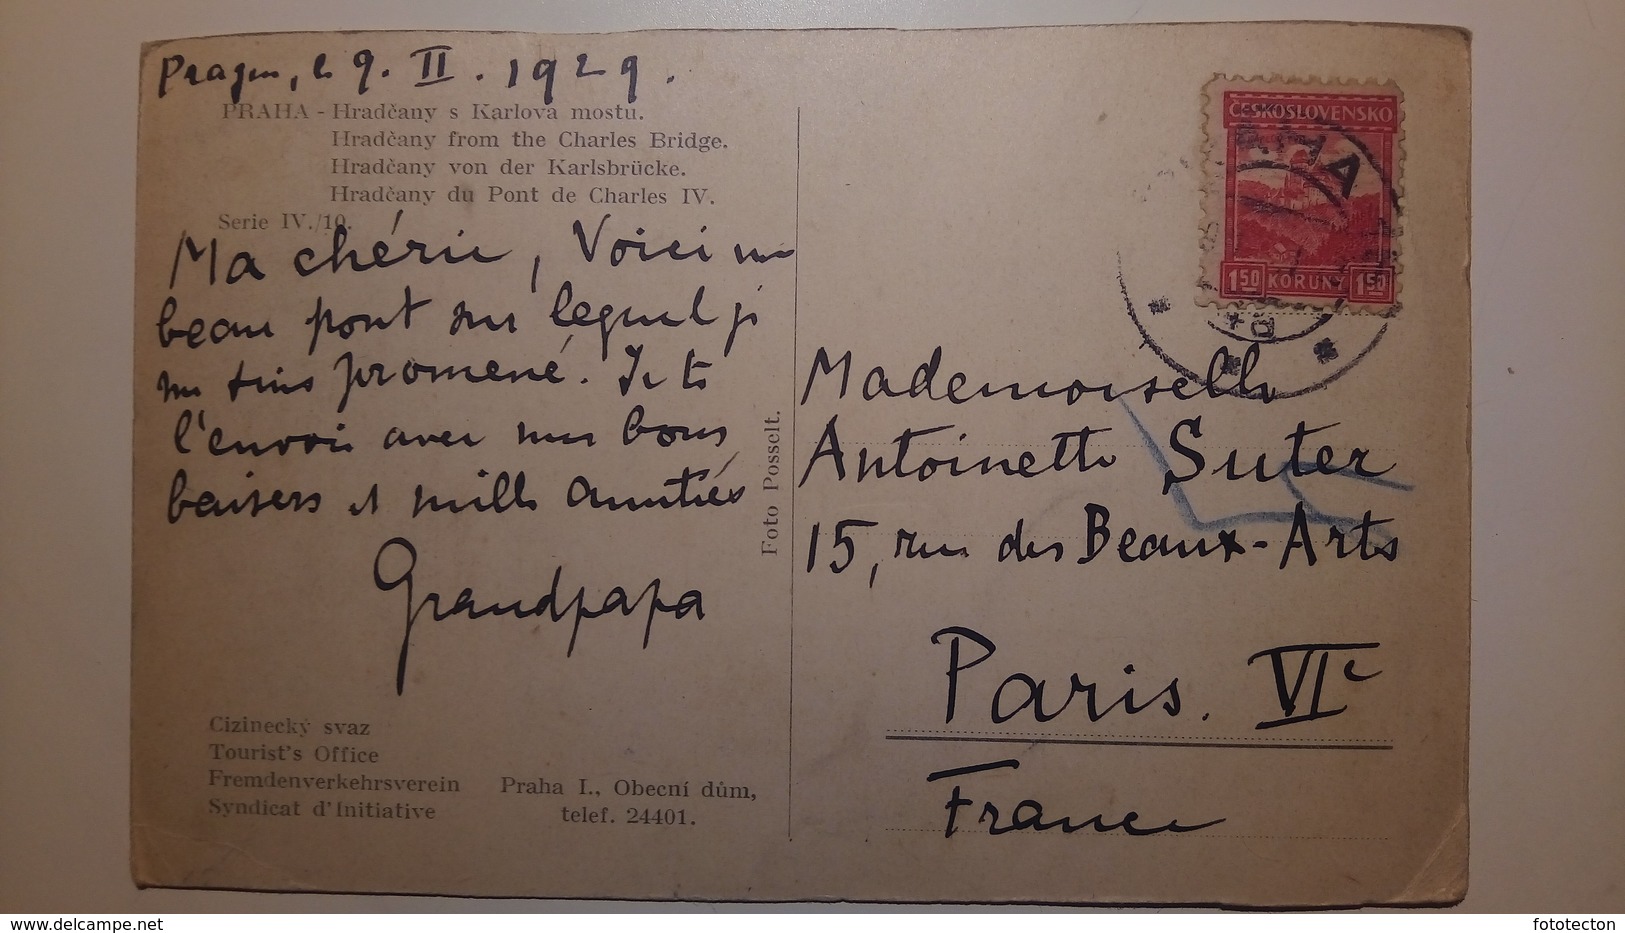 Prague, le 9. II. 1929.
PRAHA - Hradčany s Karlova mostu.
Hradčany from the Charles Bridge.
Hradčany von der Karlsbrücke.
Hradčany du Pont de Charles IV.
Serie IV./10.
Ma chérie, Voici un
beau pont sur lequel je
me suis promené. Je te
l'envoie avec mes bons
baisers et mille amitiés
Grandpapa
Foto Posselt.
Cizinecký svaz
Tourist's Office
Fremdenverkehrsverein
Syndicat d'Initiative
Praha I., Obecní dům,
telef. 24401.
ČESKOSLOVENSKO
PRAHA
1.50 KORUNY 1.50
Mademoiselle
Antoinette Suter
15, rue des Beaux-Arts
Paris. VIe
France
delcampe.net
fototecton